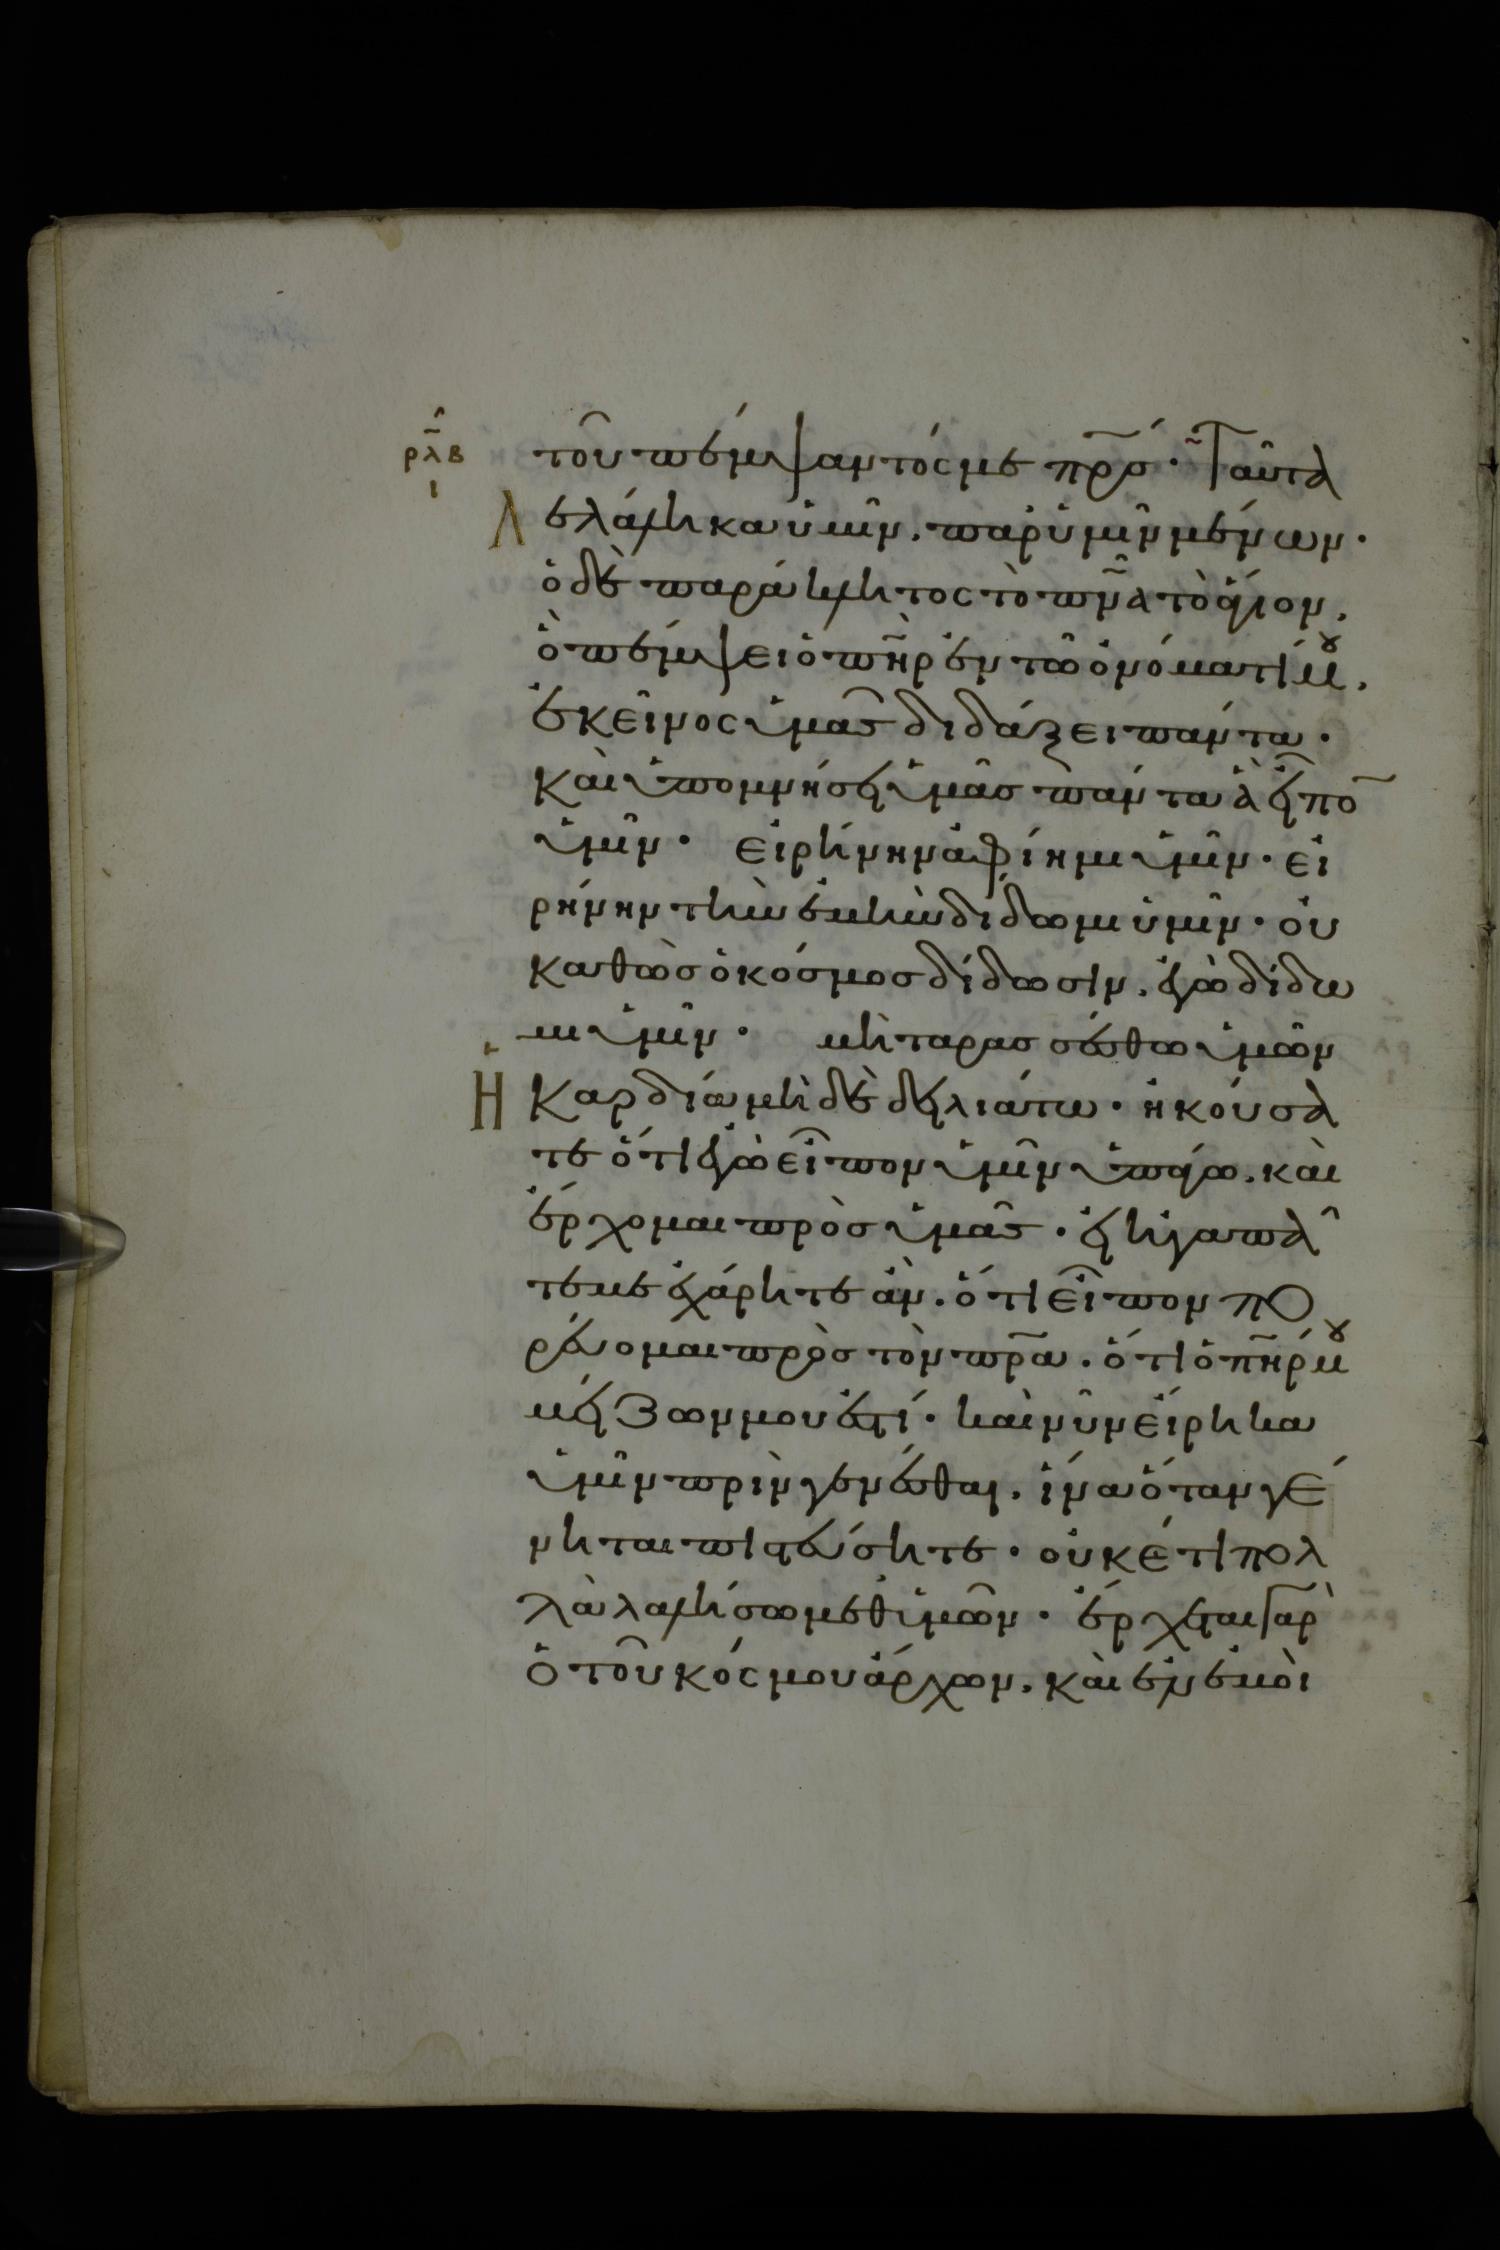 ρλβ
ι
τοῦ πέμψαντός με πρσ· Ταῦτα
λελάληκα ὑμῖν, παρ ὑμῖν μένων·
ὁ δὲ παράκλητος τὸ πνα τὸ ἅγιον,
ὃ πέμψει ὁ πηρ ἐν τῶ ὀνόματί μου,
ἐκεῖνος ὑμᾶς διδάξει πάντα·
καὶ ὑπομνήσει ὑμᾶς πάντα ἃ εἶπο
ὑμῖν· εἰρήνην ἀφίημι ὑμῖν· εἰ
ρήνην τὴν ἐμὴν δίδωμι ὑμῖν· οὐ
καθὼς ὁ κόσμος δίδωσιν, ἐγὼ δίδω
μι ὑμῖν· μὴ ταρασσέσθω ὑμῶν
Η καρδία μὴ δὲ δειλιάτω· ἠκούσα
τε ὅτι ἐγὼ εἶπον ὑμῖν ὑπάγω, καὶ
ἔρχομαι πρὸς ὑμᾶς· εἰ ἠγαπᾶ
τε με ἐχάρητε ἂν, ὅτι εἶπον πο
ρεύομαι πρὸς τὸν πρα· ὅτι ὁ πηρ μου
μείζων μου ἐστί· καὶ νῦν εἴρηκα
ὑμῖν πρὶν γενέσθαι, ἵνα ὅταν γέ
νηται πιστεύσητε· οὐκέτι πολ
λὰ λαλήσω μεθ ὑμῶν· ἔρχεται γὰρ
ὁ τοῦ κόσμου ἄρχων, καὶ ἐν ἐμοὶ